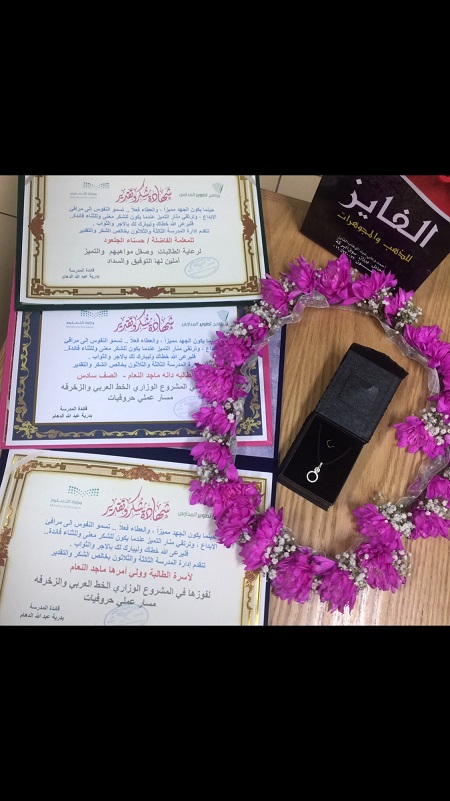 شهادة شكر وتقدير
حينما يكون الجهد مميزا ، والعطاء فعلا .. تسمو النفوس الى مرافئ
الابداع ، وترتقي منار التميز عندما يكون للشكر معنى وللثناء فائدة..
فليرعى الله خطاك ويبارك لك بالأجر والثواب .
تتقدم إدارة المدرسة الثالثة والثلاثون بخالص الشكر والتقدير
للمعلمة الفاضلة / حسناء الجلعود
لرعاية الطالبات وصقل مواهبهم والتميز
آملين لها التوفيق والسداد
قائدة المدرسة
بدرية عبد الله الدهام
شهادة شكر وتقدير
حينما يكون الجهد مميزا ، والعطاء فعلا .. تسمو النفوس الى مرافئ
الابداع ، وترتقي منار التميز عندما يكون للشكر معنى وللثناء فائدة..
فليرعى الله خطاك ويبارك لك بالأجر والثواب .
تتقدم إدارة المدرسة الثالثة والثلاثون بخالص الشكر والتقدير
للطالبه دانه ماجد النعام - الصف سادس
في المشروع الوزاري الخط العربي والزخرفه
مسار عملي حروفيات
قائدة المدرسة
بدرية عبد الله الدهام
وزارة التعليم
شهادة شكر وتقدير
تطوير المدارس
حينما يكون الجهد مميزا ، والعطاء فعلا .. تسمو النفوس الى مرافئ
الابداع ، وترتقي منار التميز عندما يكون للشكر معنى وللثناء فائدة..
فليرعى الله خطاك ويبارك لك بالأجر والثواب .
تتقدم إدارة المدرسة الثالثة والثلاثون بخالص الشكر والتقدير
لأسرة الطالبة وولي أمرها ماجد النعام
لفوزها في المشروع الوزاري الخط العربي والزخرفه
مسار عملي حروفيات
قائدة المدرسة
بدرية عبد الله الدهام
الفايز
للذهب والمجوهرات